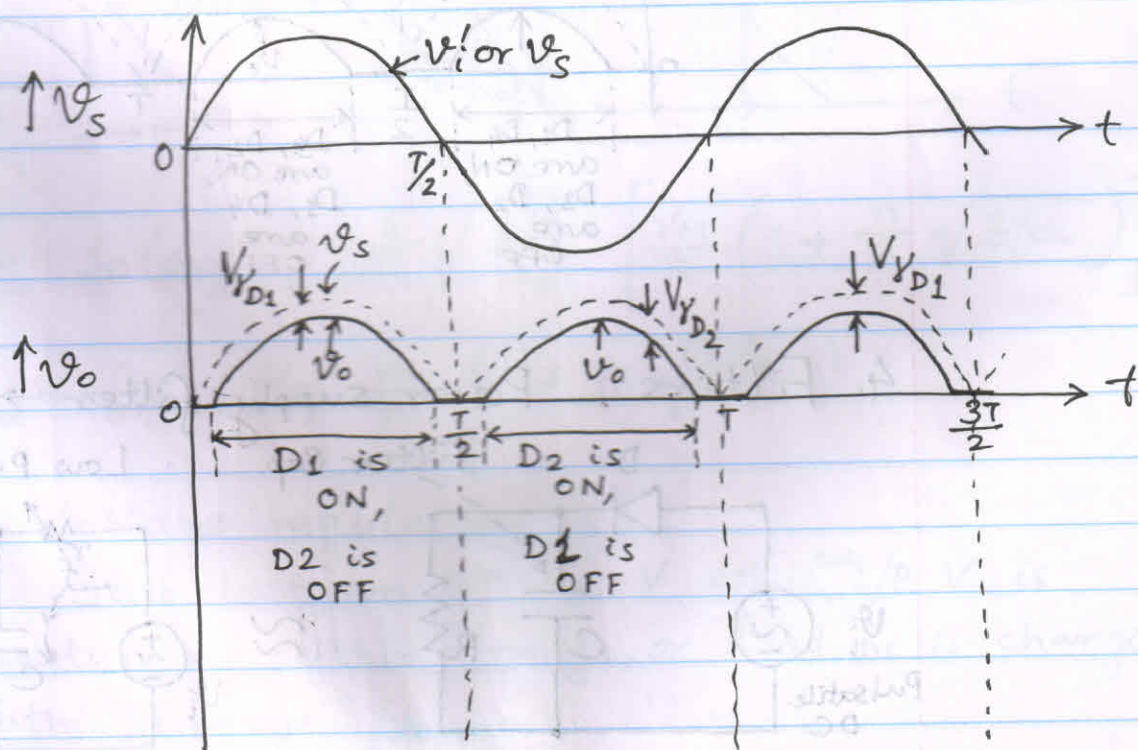 vi' or vs
↑ vs
t
0
T/2
VγD1
vs
VγD2
VγD1
↑ vo
vo
vo
t
0
T/2
T
3T/2
D1 is ON,
D2 is OFF
D2 is ON,
D1 is OFF